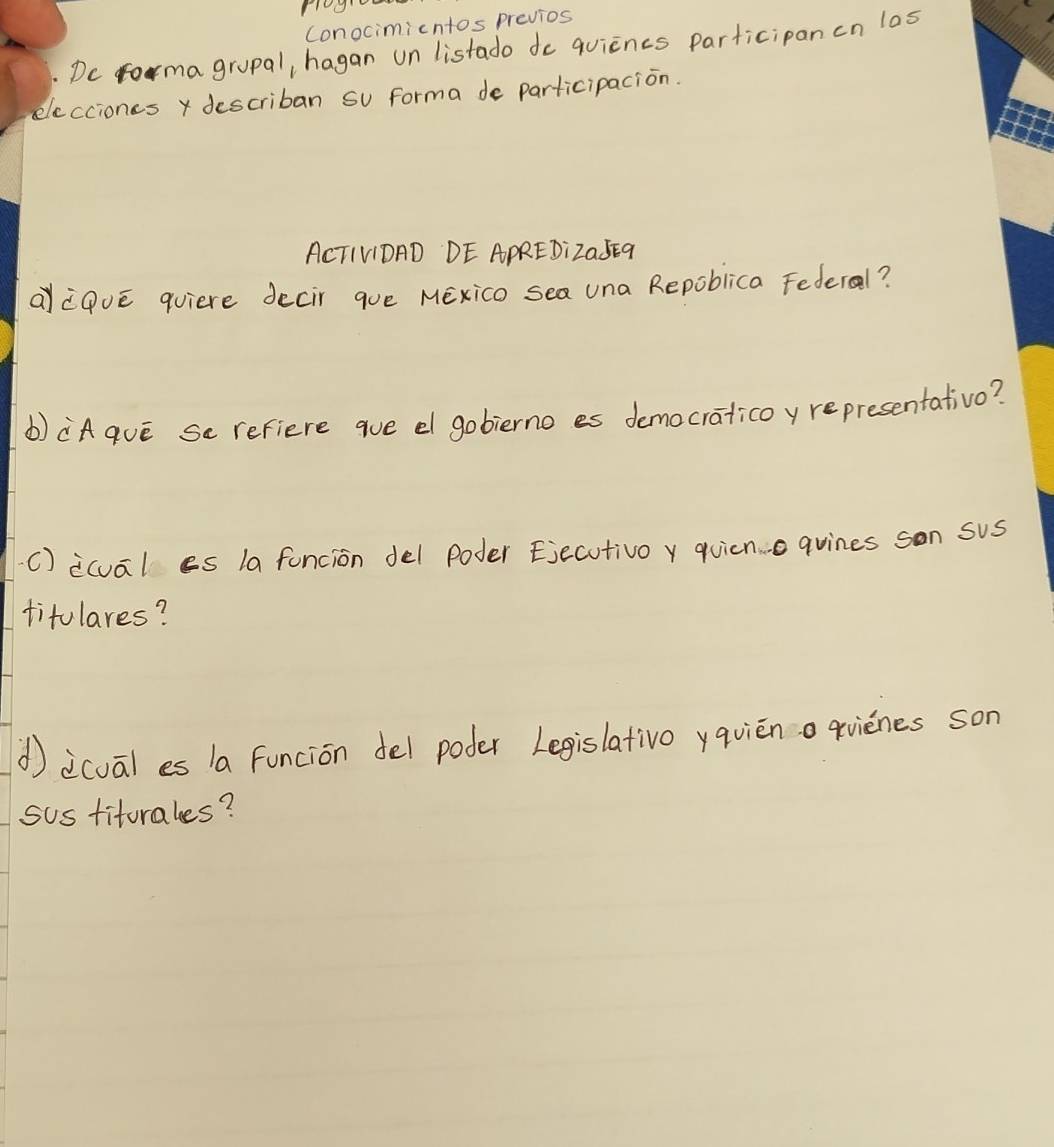 conocimientos previos
. De forma grupal, hagan un listado de quiénes participan en las
elecciones y describan su forma de participación.
ACTIVIDAD DE APREDIZAJE9
a) ¿QUÉ quiere decir que México sea una República Federal?
b) ¿A qué se refiere que el gobierno es democrático y representativo?
c) ¿cuál es la función del Poder Ejecutivo y quien o quines son sus
titulares?
d) ¿cuál es la Función del poder Legislativo y quién o quiénes son
sus titurales?